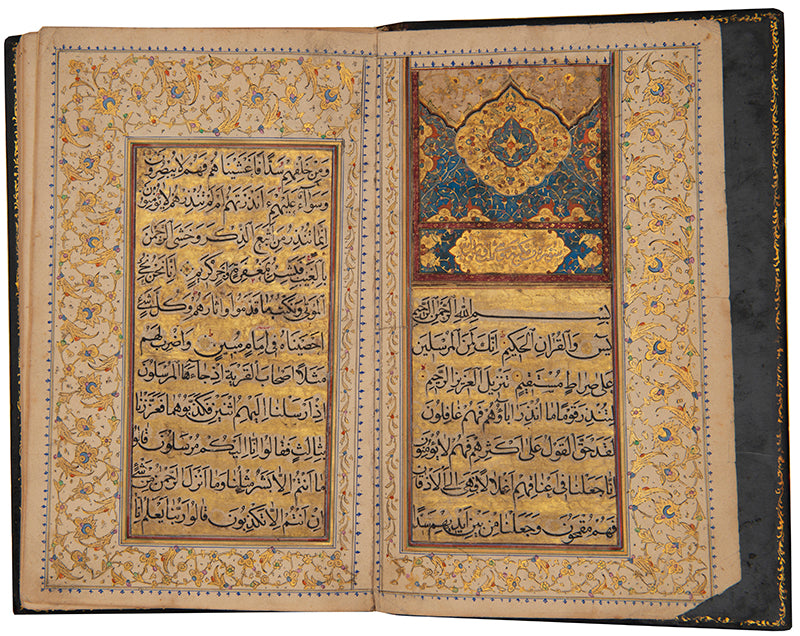 بسم الله الرحمن الرحيم
يس والقران الحكيم انك لمن المرسلين
على صراط مستقيم تنزيل العزيز الرحيم
لتنذر قوما ما انذر اباؤهم فهم غافلون
لقد حق القول على اكثرهم فهم لا يؤمنون
انا جعلنا في اعناقهم اغلالا فهي الى الاذقان
فهم مقمحون وجعلنا من بين ايديهم سدا
ومن خلفهم سدا فاغشيناهم فهم لا يبصرون
وسواء عليهم ءانذرتهم ام لم تنذرهم لا يؤمنون
انما تنذر من اتبع الذكر وخشي الرحمن
بالغيب فبشره بمغفرة واجر كريم انا نحن نحيي
الموتى ونكتب ما قدموا واثارهم وكل شيء
احصيناه في امام مبين واضرب لهم
مثلا اصحاب القرية اذ جاءها المرسلون
اذ ارسلنا اليهم اثنين فكذبوهما فعززنا
بثالث فقالوا انا اليكم مرسلون قالوا
ما انتم الا بشر مثلنا وما انزل الرحمن من شيء
ان انتم الا تكذبون قالوا ربنا يعلم انا